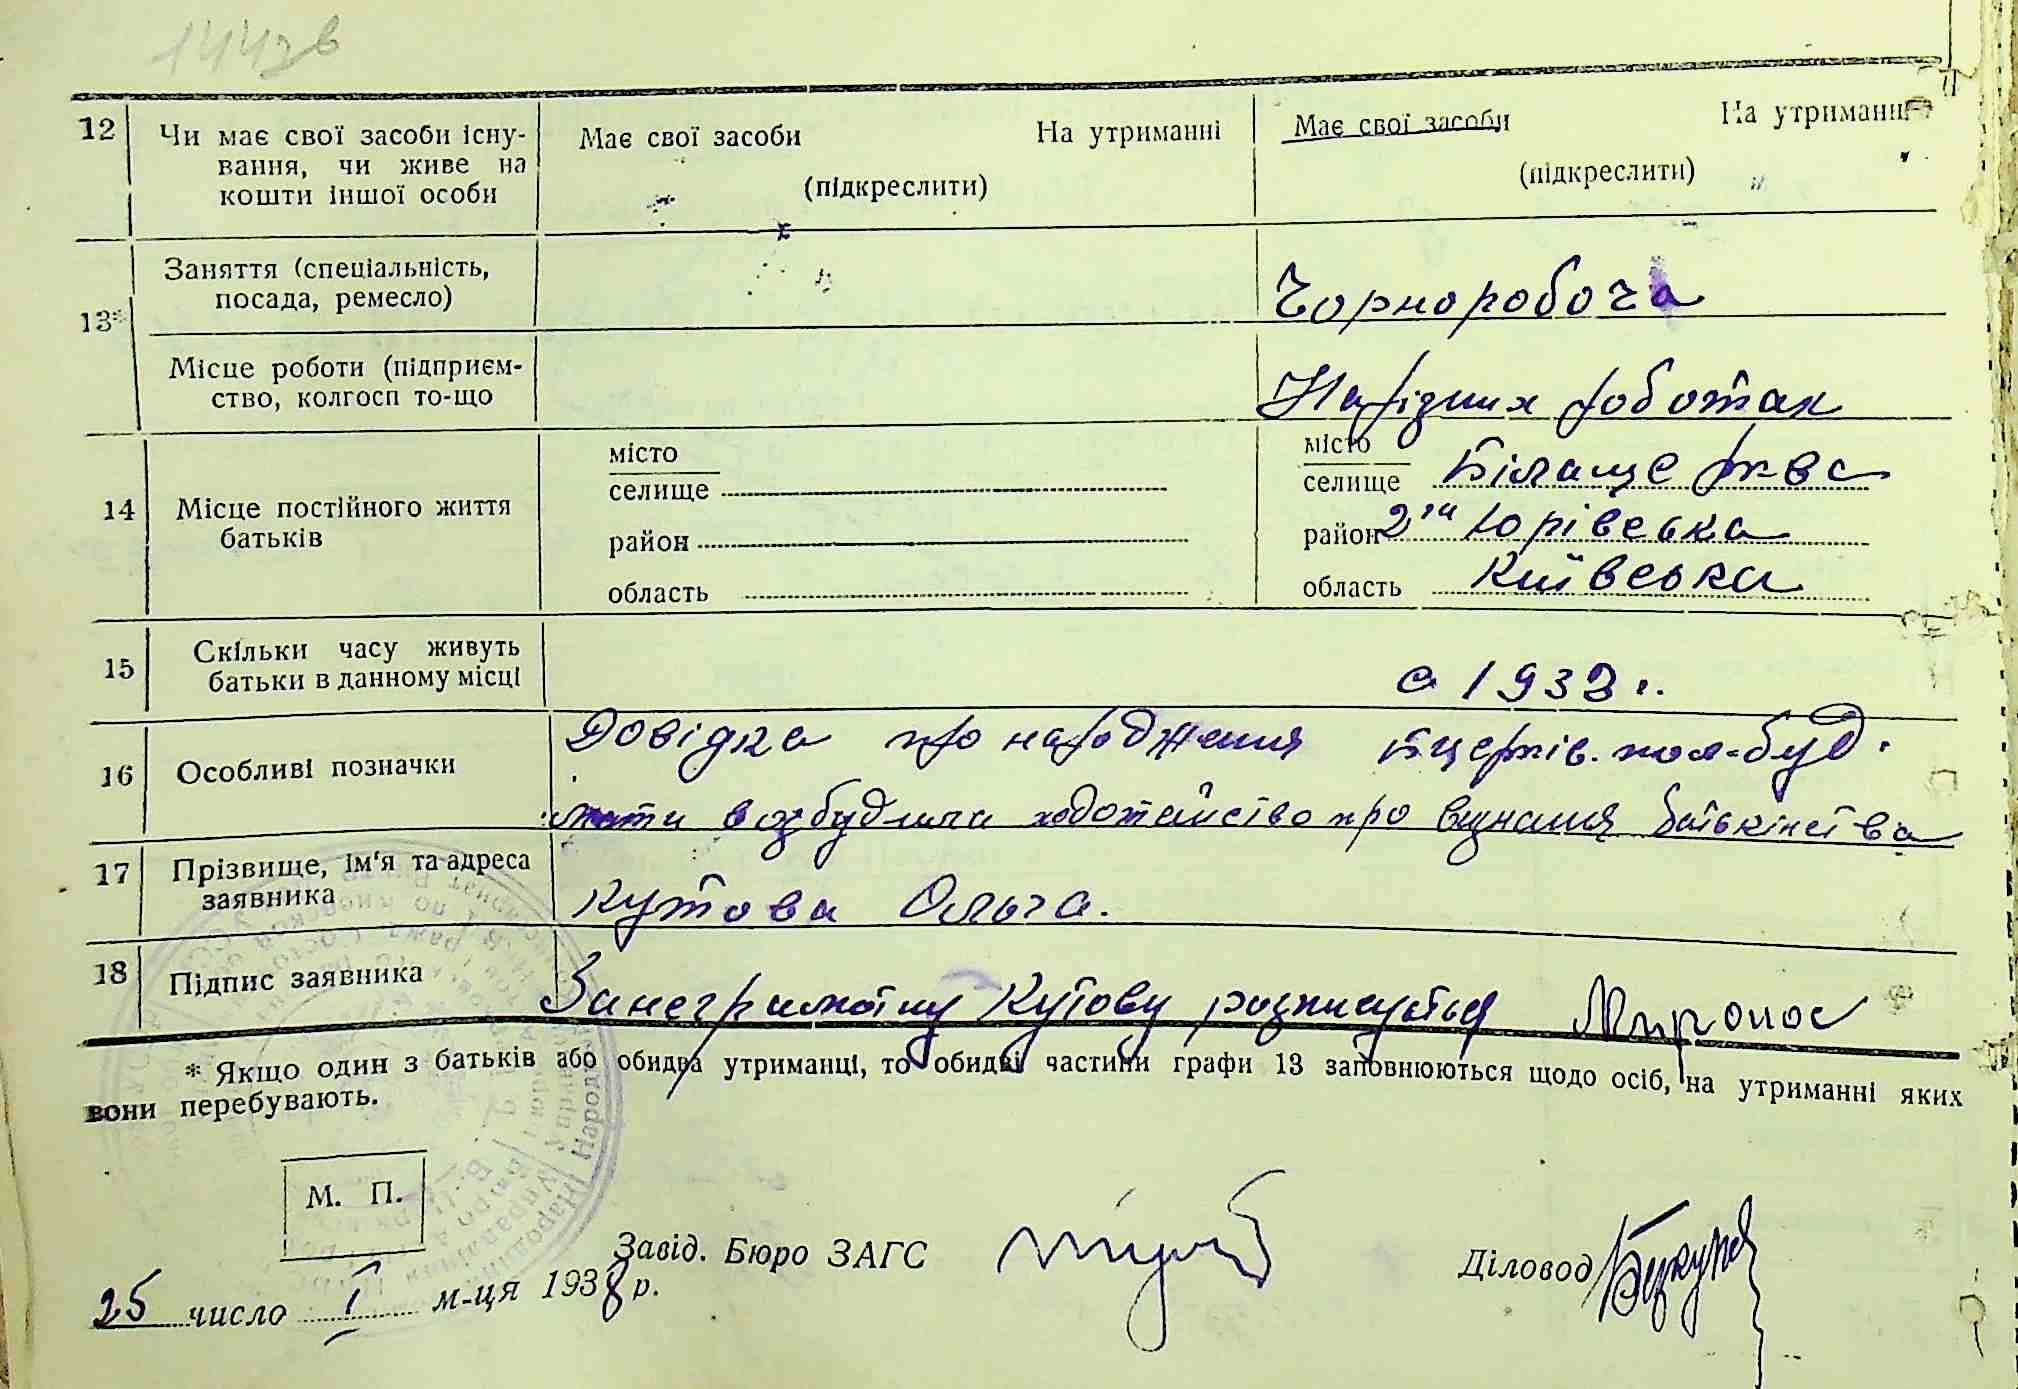 12 Чи має свої засоби існу- Має свої засоби На утриманні Має свої засоби На утриманні
вання, чи живе на
кошти іншої особи (підкреслити) (підкреслити)
13* Заняття (спеціальність,
посада, ремесло) Чорноробоча
Місце роботи (підприєм-
ство, колгосп то-що На різних роботах
14 Місце постійного життя
батьків
місто
селище
район
область
місто
селище Білаще рква
район 2га Юрівська
область Київська
15 Скільки часу живуть
батьки в данному місці с 1933 г.
16 Особливі позначки Довідка про народження Бцерків. пол-буд.
мати возбудила ходотайство про визнання батьківства
17 Прізвище, ім'я та адреса
заявника Кутова Ольга.
18 Підпис заявника За неграмотну Кутову розписується
* Якщо один з батьків або обидва утриманці, то обидві частини графи 13 заповнюються щодо осіб, на утриманні яких
вони перебувають.
М. П.
Завід. Бюро ЗАГС
Діловод
25 число I м-ця 1938 р.